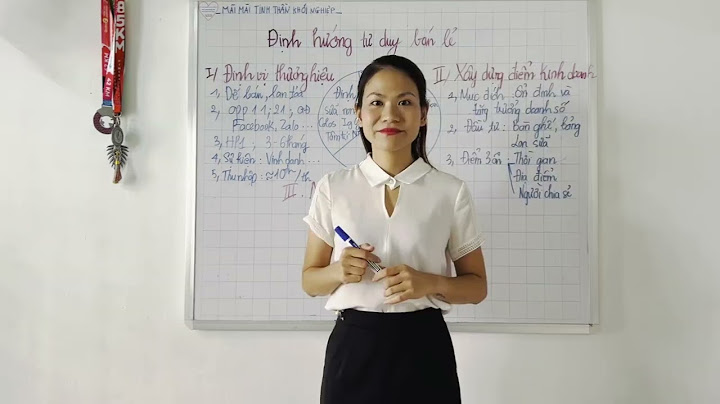 MÃI MÃI TINH THẦN KHỞI NGHIỆP
Định hướng tư duy bán lẻ
I/ Định vị thương hiệu
1, Dễ bán, lan tỏa
2, OPP 11; 21;
Facebook, Zalo...
3, HP1; 3-6 tháng
4, Sự kiện: Vinh danh...
5, Thu nhập: ≈ 10tr/th
Định
Sữa non
Colos
III.
II/ Xây dựng điểm kinh doanh
1, Mục đích: Ổn định và
tăng trưởng doanh số
2, Đầu tư: Bàn ghế, bảng
lon sữa
3, Điểm bán: Thời gian
Địa điểm
Người chia sẻ
85KM